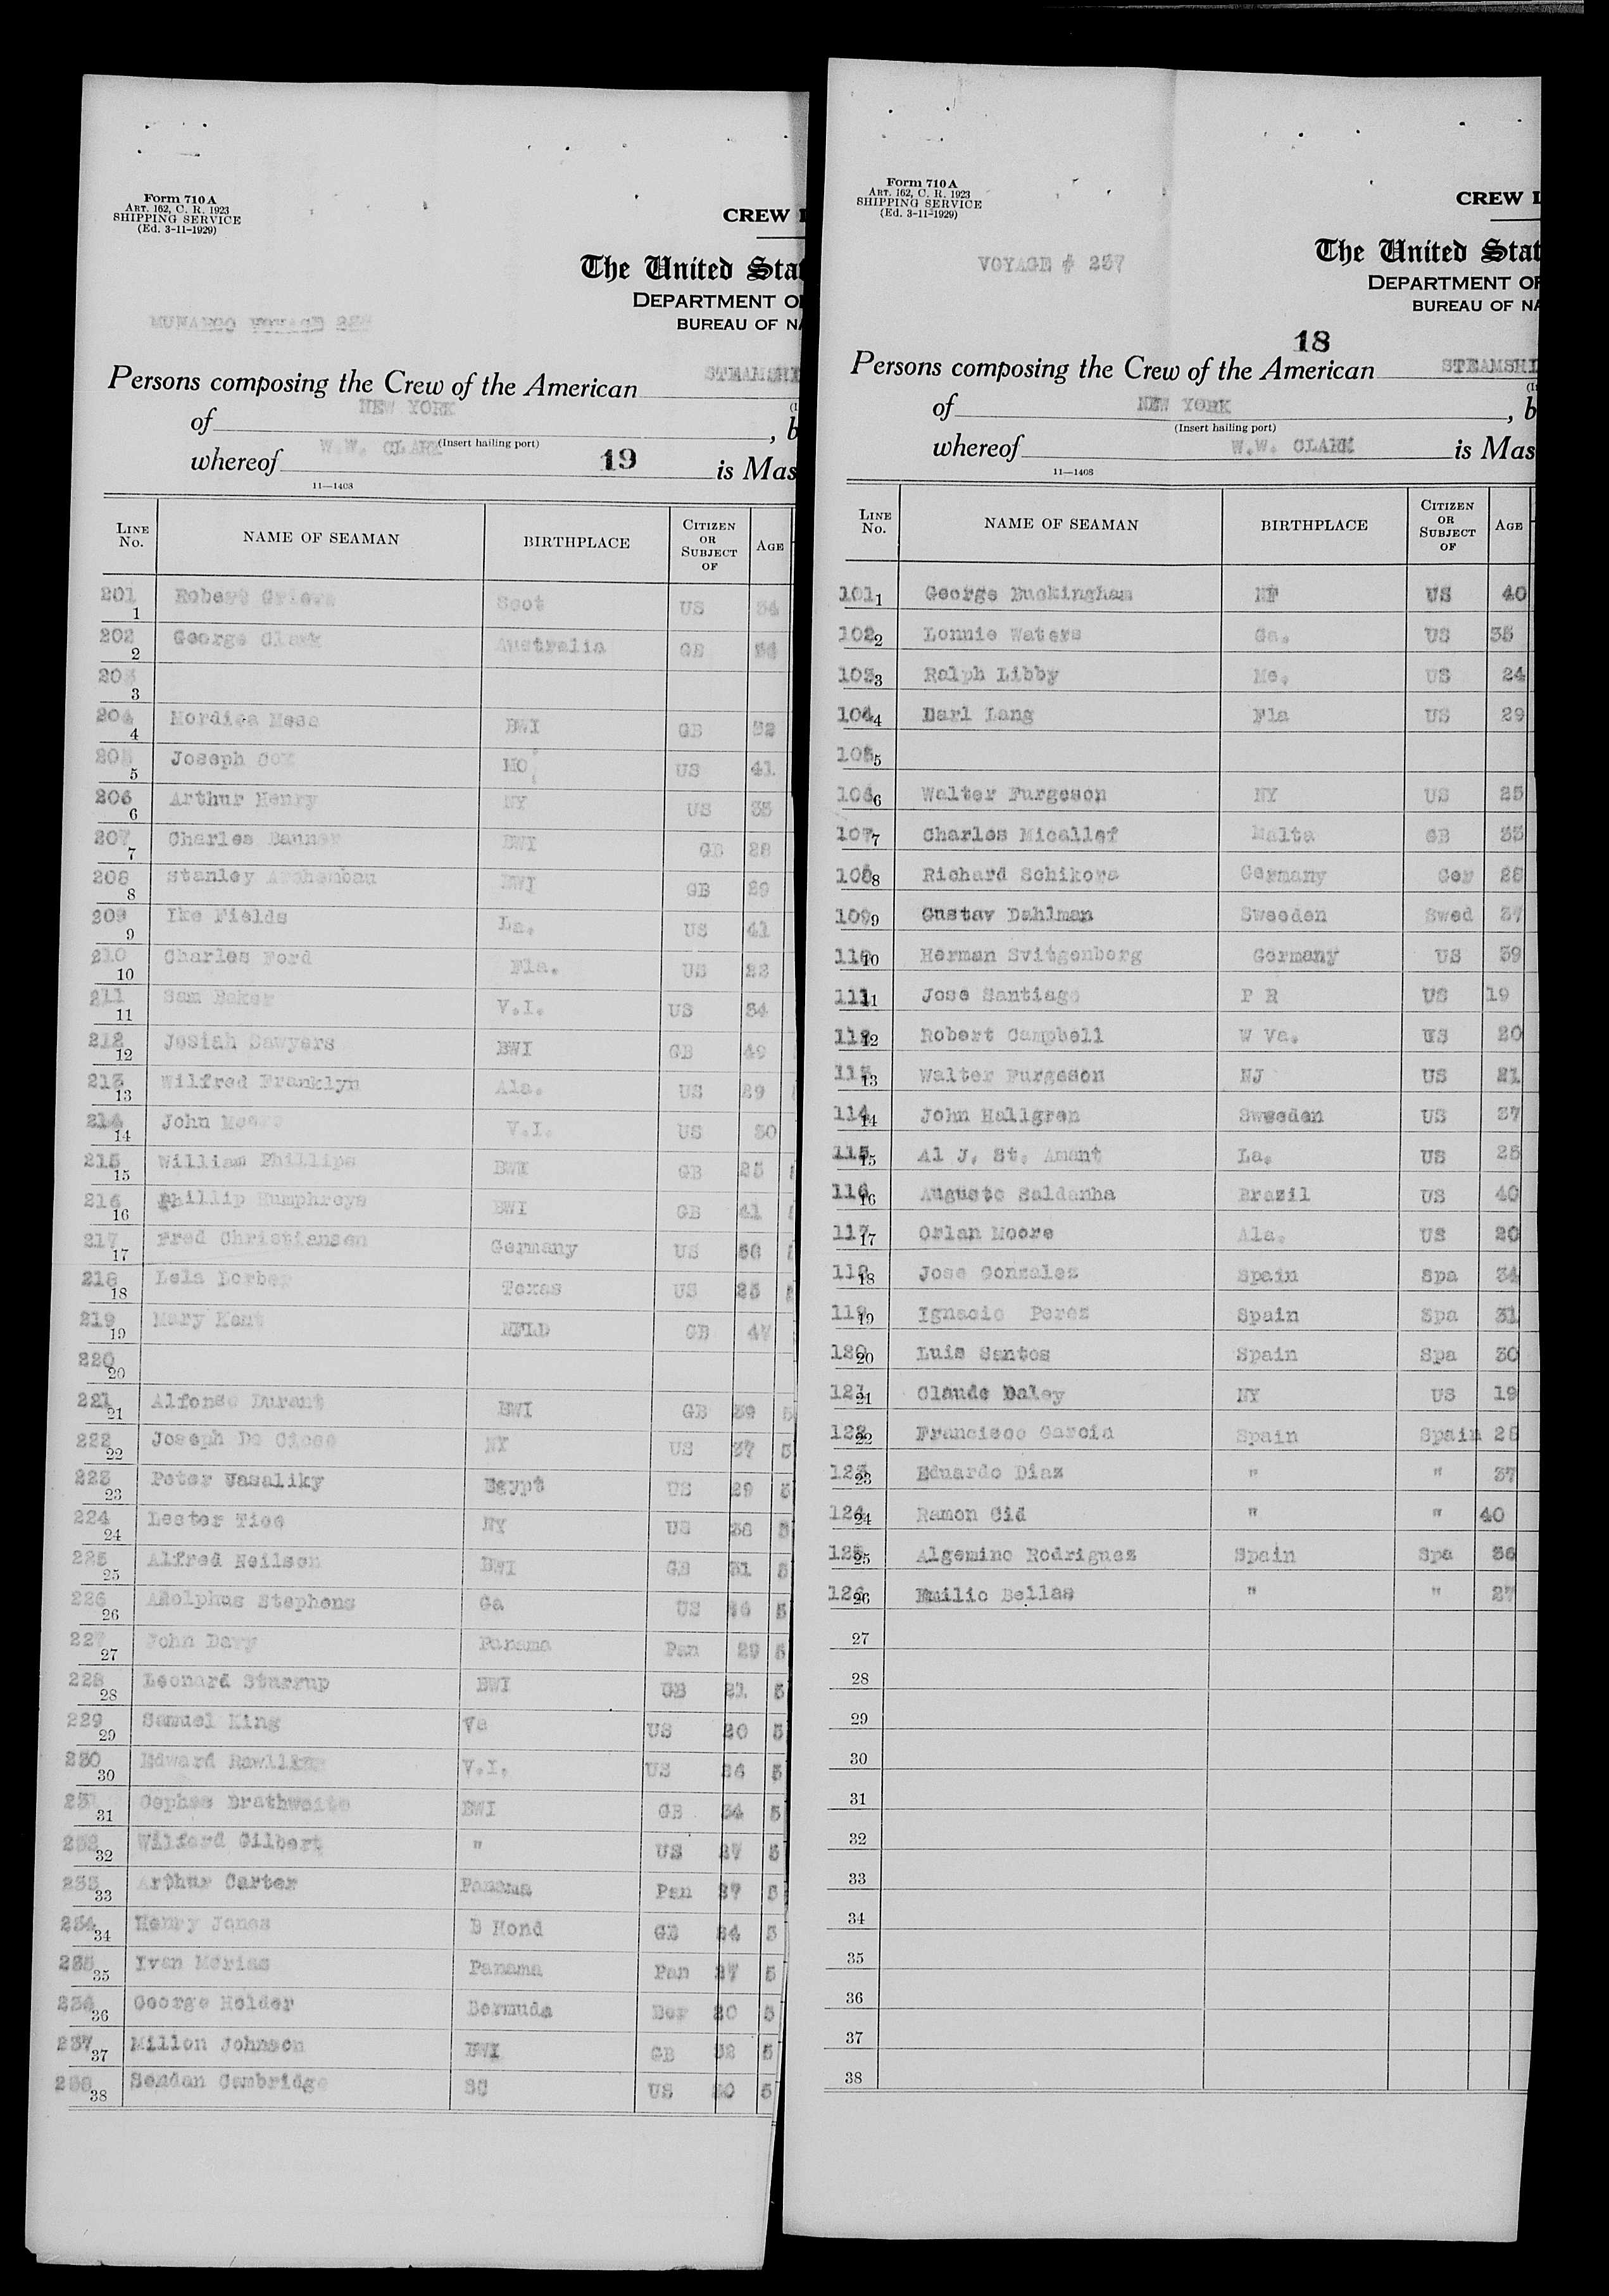 Form 710 A
ART. 162, C. R. 1923
SHIPPING SERVICE
(Ed. 3-11-1929)
CREW L
The United Stat
DEPARTMENT OF
BUREAU OF NA
MUNARGO VOYAGE
Persons composing the Crew of the American STEAMSHI
of NEW YORK , b
(Insert hailing port)
whereof W.W. CLARK 19 is Mas
11—1408
LINE No. NAME OF SEAMAN BIRTHPLACE CITIZEN OR SUBJECT OF AGE
201 1 Robert Scot US 34
202 2 George Clark Australia GB
203 3
204 4 Mordica Mesa BWI GB 32
205 5 Joseph Cox MO US 41
206 6 Arthur Henry NY US 35
207 7 Charles Banner BWI GB 28
208 8 Stanley BWI GB 29
209 9 Ike Fields La. US 41
210 10 Charles Ford Fla. US 22
211 11 Sam Baker V.I. US 34
212 12 Josiah Sawyers BWI GB 49
213 13 Wilfred Franklyn Ala. US 29
214 14 John V.I. US 30
215 15 William Phillips BWI GB 25
216 16 Phillip Humphreys BWI GB 41
217 17 Fred Christiansen Germany US
218 18 Lela Lorber Texas US 25
219 19 Mary Kent NFLD GB 47
220 20
221 21 Alfonso Durant BWI GB 39 5
222 22 Joseph De Cicco NY US 37 5
223 23 Peter Vasaliky Egypt US 29 5
224 24 Lester Tice NY US 38 5
225 25 Alfred Neilson BWI GB 31 5
226 26 Adolphus Stephens Ga US 5
227 27 John Davy Panama Pan 29 5
228 28 Leonard Sturrup BWI GB 21 5
229 29 Samuel King Va US 20 5
230 30 Edward Rawlins V.I. US 5
231 31 Cephas Brathwaite BWI GB 34 5
232 32 Wilford Gilbert " US 27 5
233 33 Arthur Carter Panama Pan 27 5
234 34 Henry Jones B Hond GB 24 5
235 35 Ivan Panama Pan 27 5
236 36 George Holder Bermuda Ber 20 5
237 37 Millon Johnson BWI GB 5
238 38 Sendan Cambridge SC US 5
Form 710 A
ART. 162, C. R. 1923
SHIPPING SERVICE
(Ed. 3-11-1929)
CREW L
The United Stat
DEPARTMENT OF
BUREAU OF NA
VOYAGE # 237
18
Persons composing the Crew of the American STEAMSHI
of NEW YORK , b
(Insert hailing port)
whereof W.W. CLARK is Mas
11—1408
LINE No. NAME OF SEAMAN BIRTHPLACE CITIZEN OR SUBJECT OF AGE
101 1 George Buckingham NF US 40
102 2 Lonnie Waters Ga. US 35
103 3 Ralph Libby Me. US 24
104 4 Earl Lang Fla US 29
105 5
106 6 Walter Furgeson NY US 25
107 7 Charles Micallef Malta GB 33
108 8 Richard Schikora Germany Ger 28
109 9 Gustav Dahlman Sweeden Swed 37
110 10 Herman Svitgenberg Germany US 39
111 11 Jose Santiago P R US 19
112 12 Robert Campbell W Va. US 20
113 13 Walter Furgeson NJ US 21
114 14 John Hallgren Sweeden US 37
115 15 Al J. St. Amant La. US 25
116 16 Augusto Saldanha Brazil US 40
117 17 Orlan Moore Ala. US 20
118 18 Jose Gonzalez Spain Spa 34
119 19 Ignacio Perez Spain Spa 31
120 20 Luis Santos Spain Spa 30
121 21 Claude Daley NY US 19
122 22 Francisco Garcia Spain Spain 28
123 23 Eduardo Diaz " " 37
124 24 Ramon Cid " " 40
125 25 Algemino Rodriguez Spain Spa 36
126 26 Emilio Bellas " " 27
27
28
29
30
31
32
33
34
35
36
37
38